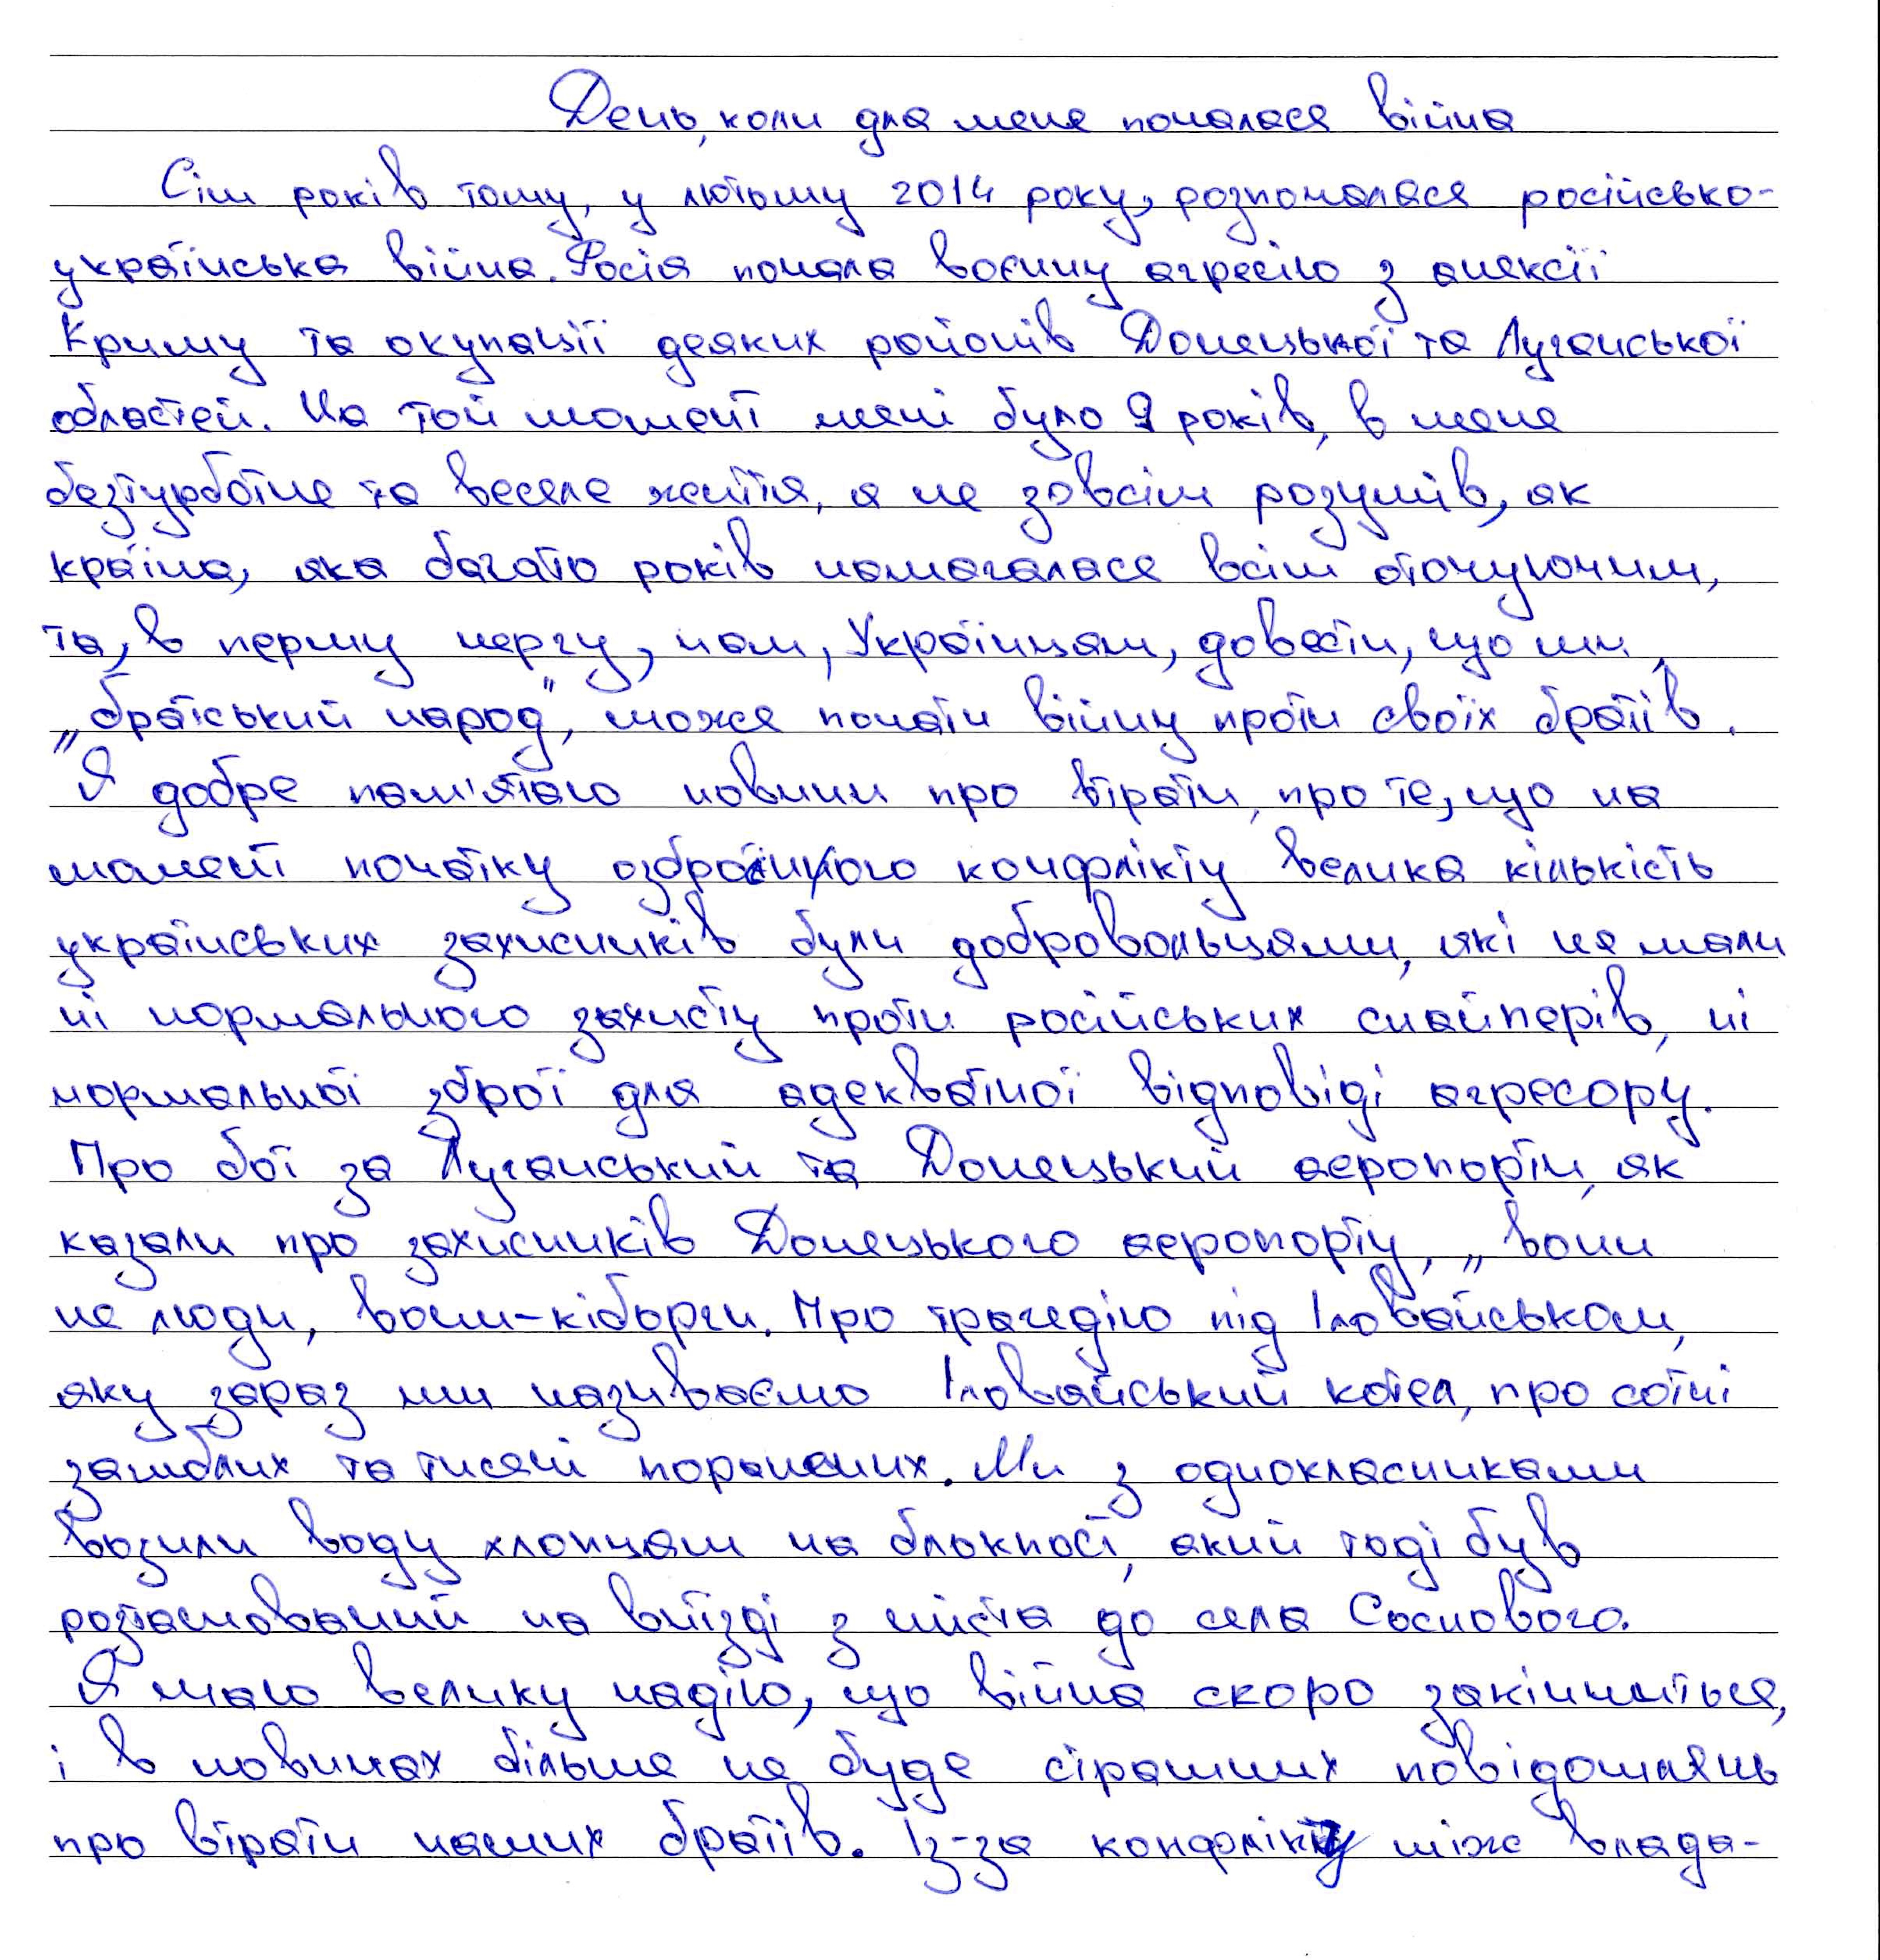 День, коли для мене почалася війна
Сім років тому, у лютому 2014 року, розпочалася російсько-
українська війна. Росія почала воєнну агресію з анексії
Криму та окупації деяких районів Донецької та Луганської
областей. На той момент мені було 9 років, в мене
безтурботне та веселе життя, я не зовсім розумів, як
країна, яка багато років намагалася всім оточуючим,
та, в першу чергу, нам, Українцям, довести, що ми,
„братський народ", може почати війну проти своїх братів.
Я добре пам'ятаю новини про втрати, про те, що на
момент початку озброєного конфлікту велика кількість
українських захисників були добровольцями, які не мали
ні нормального захисту проти російських снайперів, ні
нормальної зброї для адекватної відповіді агресору.
Про бої за Луганський та Донецький аеропорти, як
казали про захисників Донецького аеропорту, „вони
не люди, вони-кіборги. Про трагедію під Іловайськом,
яку зараз ми називаємо Іловайський котел, про сотні
загиблих та тисячі поранених. Ми з однокласниками
возили воду хлопцям на блокпост, який тоді був
розташований на виїзді з міста до села Соснового.
Я маю велику надію, що війна скоро закінчиться,
і в новинах більше не буде страшних повідомлень
про втрати наших братів. Із-за конфлікту між влада-